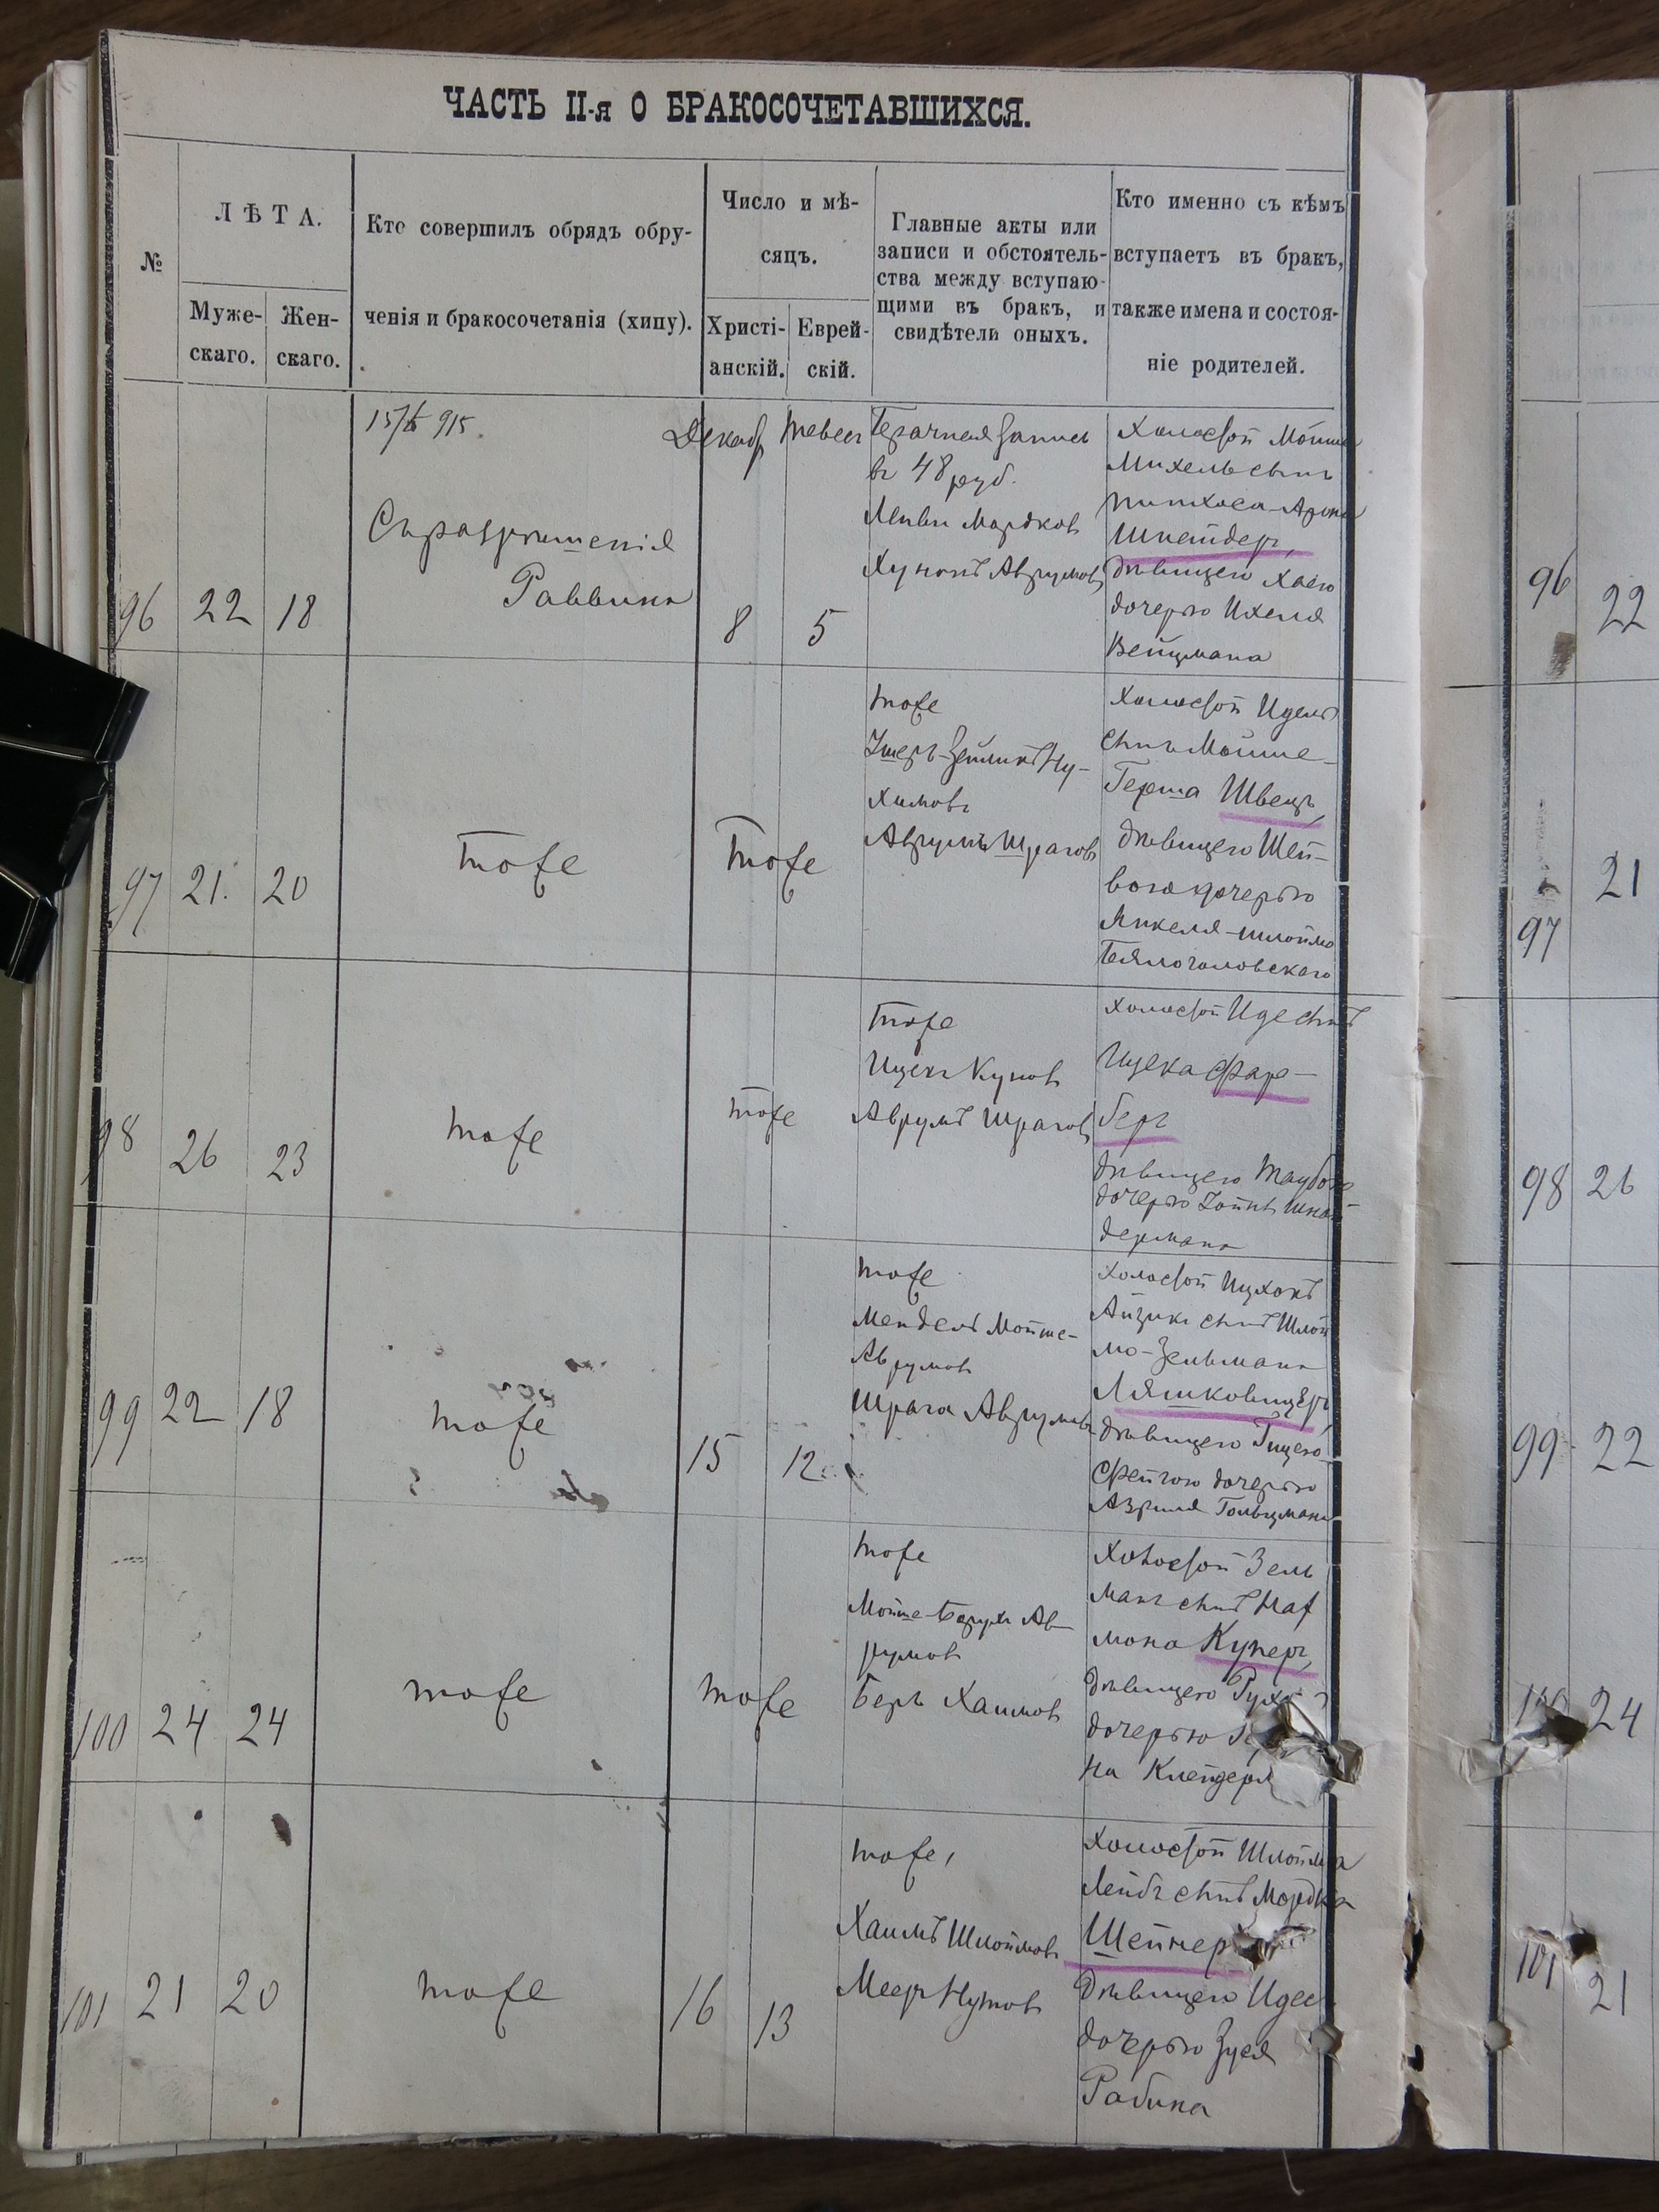 ЧАСТЬ II-я О БРАКОСОЧЕТАВШИХСЯ.
№
ЛѢТА.
Муже-
скаго.
Жен-
скаго.
Кто совершилъ обрядъ обру-
ченія и бракосочетанія (хипу).
Число и мѣ-
сяцъ.
Христі-
анскій.
Еврей-
скій.
Главные акты или
записи и обстоятель-
ства между вступаю-
щими въ бракъ, и
свидѣтели оныхъ.
Кто именно съ кѣмъ
вступаетъ въ бракъ,
также имена и состоя-
ніе родителей.
96
22
18
915
Съ разрѣшенія
Раввина
Декабр
8
Тевес
5
Брачная запись
въ 48 руб.
Лейви Мордков
Хунонъ Аврумовъ
Холостой Мойше
Михель сынъ
Пинхоса-Арона
Шнейдеръ,
дѣвицею Хаею
дочерью Ихеля
Вейцмана
97
21.
20
тоже
тоже
тоже
Ушеръ-Зейликъ Ну-
химовъ
Аврумъ Шрагов
Холостой Идель
сынъ Мойше-
Герша Швецъ,
дѣвицею Шей-
вогою дочерью
Янкеля-Шлоймо
Бялоголовскаго
98
26
23
тоже
тоже
тоже
Ицекъ Куповъ
Аврумъ Шрагов
холостой Иде сынъ
Ицека Фаер-
бергъ
дѣвицею Таубою
дочерью Зойнъ Шной-
дермана
99
22
18
тоже
15
12
тоже
Мендель Мойше-
Аврумовъ
Шрага Аврумовъ
холостой Ицхокъ
Айзикъ сынъ Шлой
мо-Зельмана
Ляшковицеръ,
дѣвицею Гицею
Фейгою дочерью
Азриля Гольцмана
100
24
24
тоже
тоже
тоже
Мойше-Борухъ Ав-
румовъ
Беръ Хаимовъ
Холостой Зель
манъ сынъ Наф
мона Куперъ,
дѣвицею
дочерью
на Клейдерм
101
21
20
тоже
16
13
тоже,
Хаимъ Шлоймовъ
Мееръ Нутовъ
Холостой Шлойма
Лейбъ сынъ Мордка
Шейнер
дѣвицею Идес
дочерью Зуся
Рабина
96
22
97
21
98
26
99
22
24
101
21